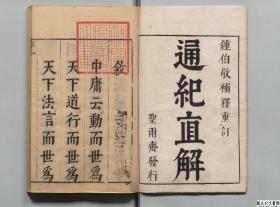 鍾伯敬補釋重訂
通紀直解
聖雨齋發行
敘
中庸云動而世為
天下道行而世為
天下法言而世為